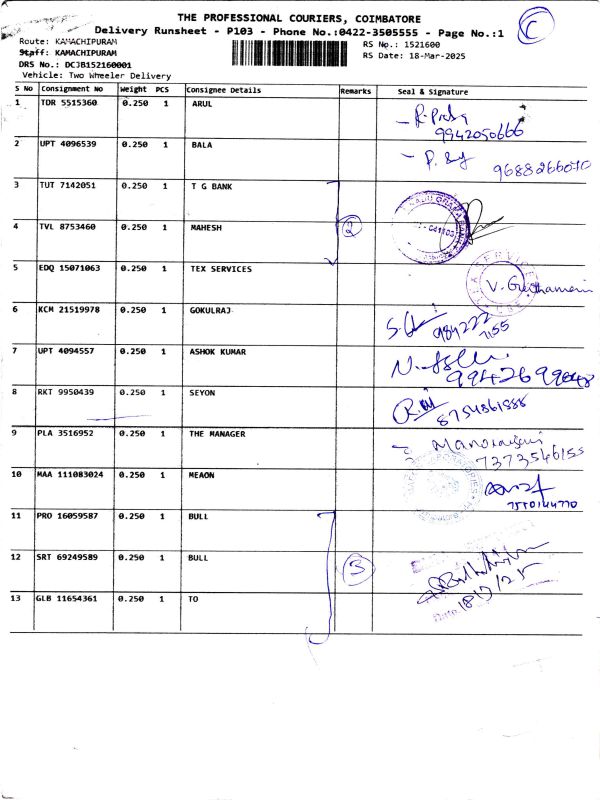 THE PROFESSIONAL COURIERS, COIMBATORE
Delivery Runsheet - P103 - Phone No.:0422-3505555 - Page No.:1
C
Route: KAMACHIPURAM
Staff: KAMACHIPURAM
DRS No.: DCJB152160001
Vehicle: Two Wheeler Delivery
RS No.: 1521600
RS Date: 18-Mar-2025
S No Consignment No Weight PCS Consignee Details Remarks Seal & Signature
1 TDR 5515360 0.250 1 ARUL
9942050666
2 UPT 4096539 0.250 1 BALA
9688266070
3 TUT 7142051 0.250 1 T G BANK
4 TVL 8753460 0.250 1 MAHESH 2
5 EDQ 15071063 0.250 1 TEX SERVICES
6 KCM 21519978 0.250 1 GOKULRAJ
7 UPT 4094557 0.250 1 ASHOK KUMAR
8 RKT 9950439 0.250 1 SEYON
9 PLA 3516952 0.250 1 THE MANAGER
7373546155
10 MAA 111083024 0.250 1 MEAON
7550144770
11 PRO 16059587 0.250 1 BULL
12 SRT 69249589 0.250 1 BULL 3
13 GLB 11654361 0.250 1 TO